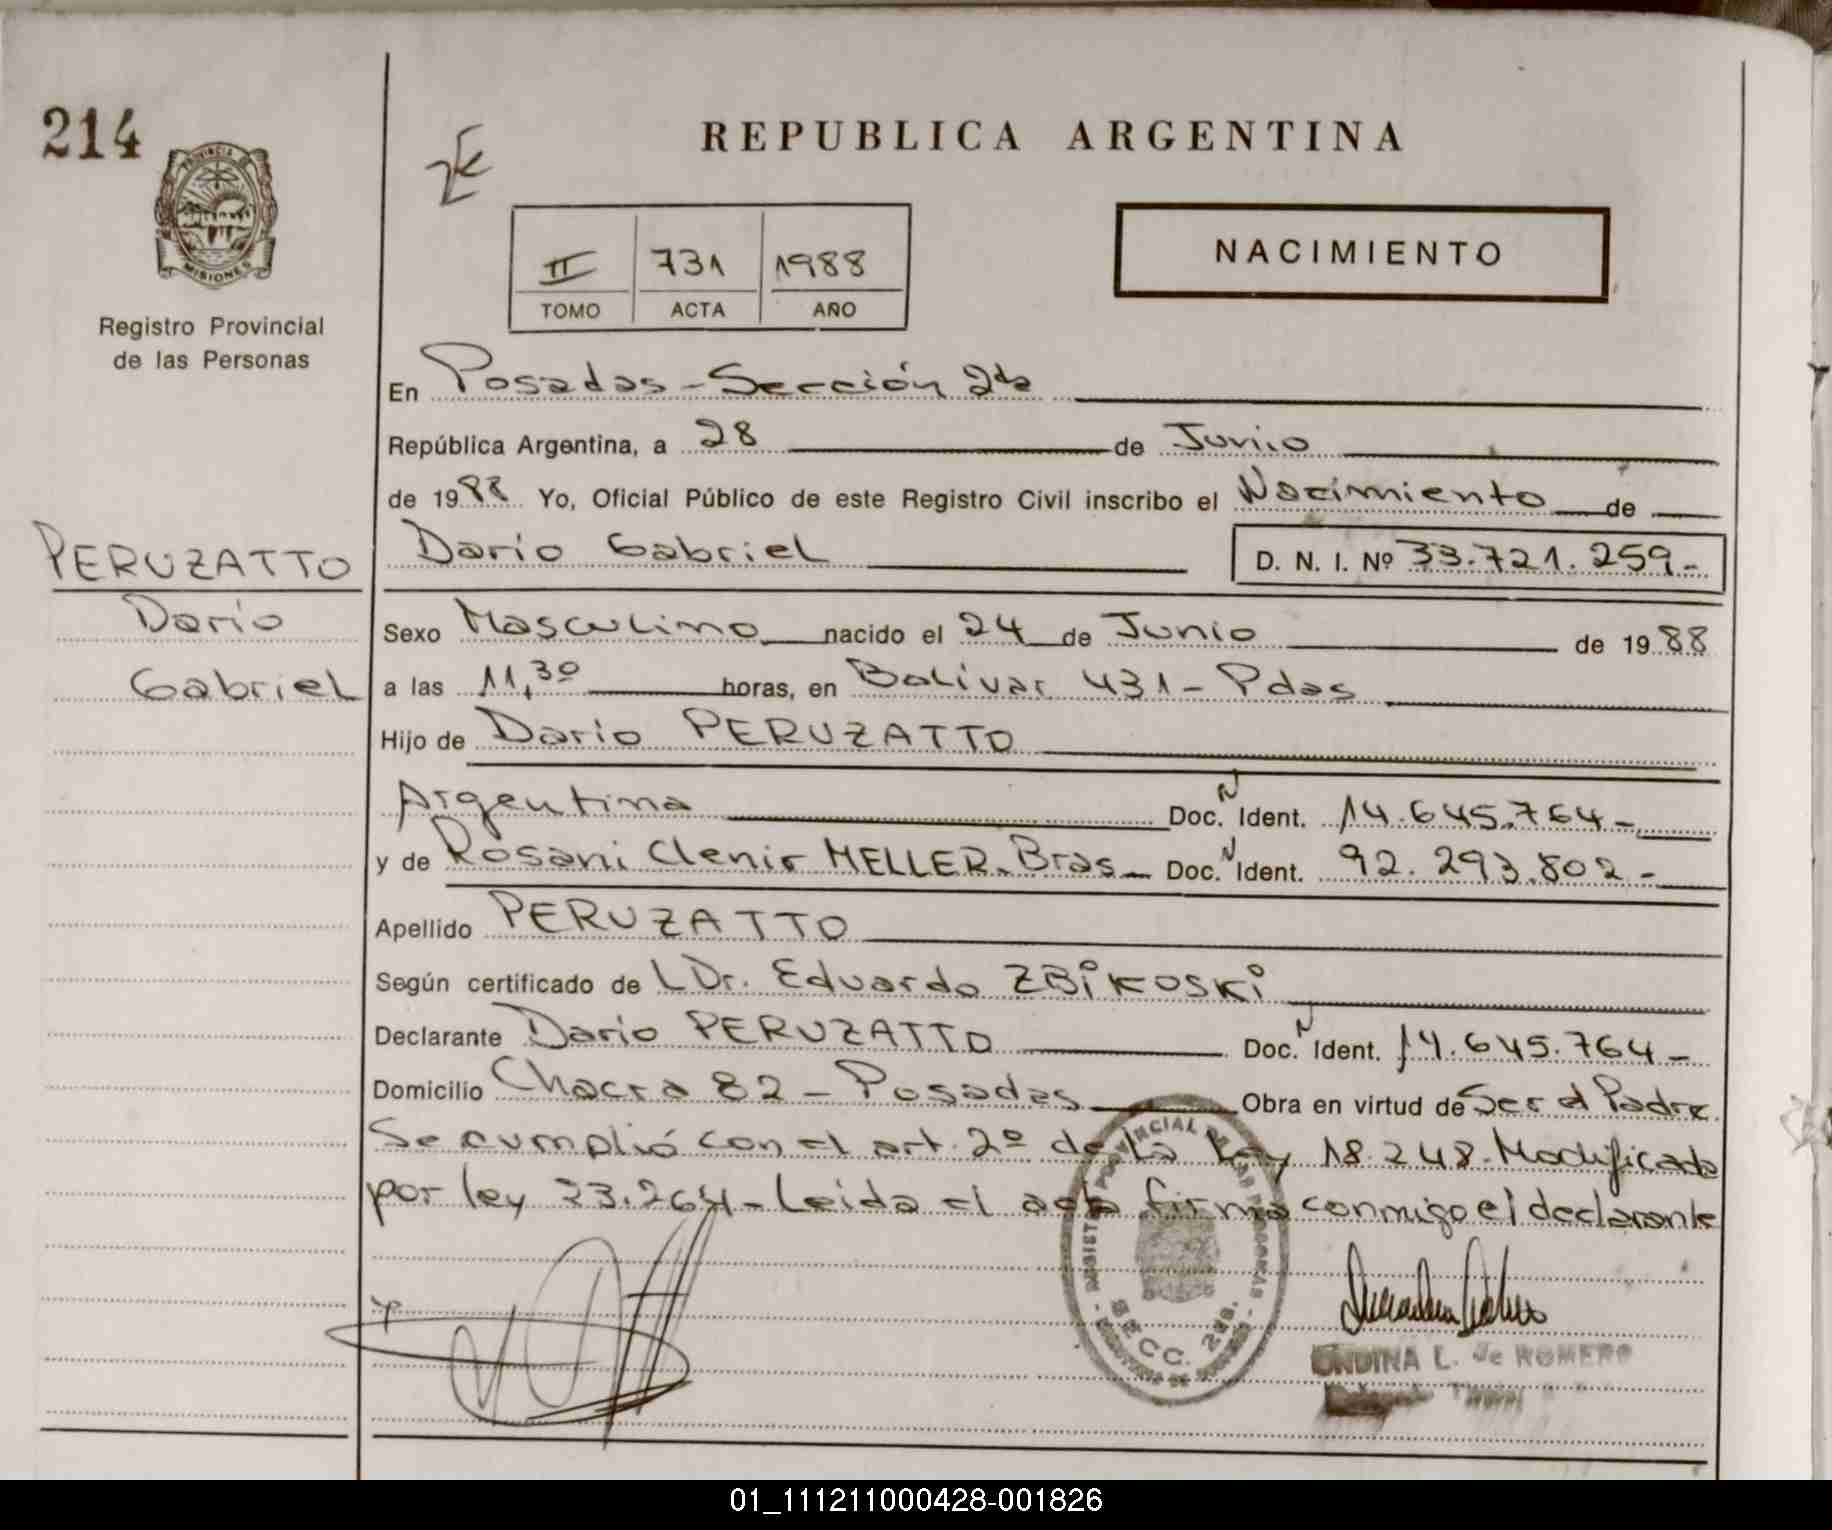 214
PROVINCIA DE
MISIONES
Registro Provincial
de las Personas
REPUBLICA ARGENTINA
II 731 1988
TOMO ACTA AÑO
NACIMIENTO
En Posadas - Sección 2da
República Argentina, a 28 de Junio
de 1988 Yo, Oficial Público de este Registro Civil inscribo el Nacimiento de
PERUZATTO
Darío
Gabriel
Darío Gabriel D. N. I. Nº 33.721.259-
Sexo Masculino nacido el 24 de Junio de 1988
a las 11,30 horas, en Bolívar 431 - Pdas
Hijo de Darío PERUZATTO
Argentina Doc. N Ident. 14.645.764-
y de Rosani Clenir MELLER. Bras- Doc. N Ident. 92.293.802-
Apellido PERUZATTO
Según certificado de L Dr. Eduardo ZBiKOSKi
Declarante Darío PERUZATTO Doc. N Ident. 14.645.764-
Domicilio Chacra 82 - Posadas Obra en virtud de Ser el Padre
Se cumplió con el art. 2º de la Ley 18.248. Modificada
por ley 23.264 - Leída el acta firma conmigo el declarante
SECC. 2da.
ONDINA L. de ROMERO
01_111211000428-001826